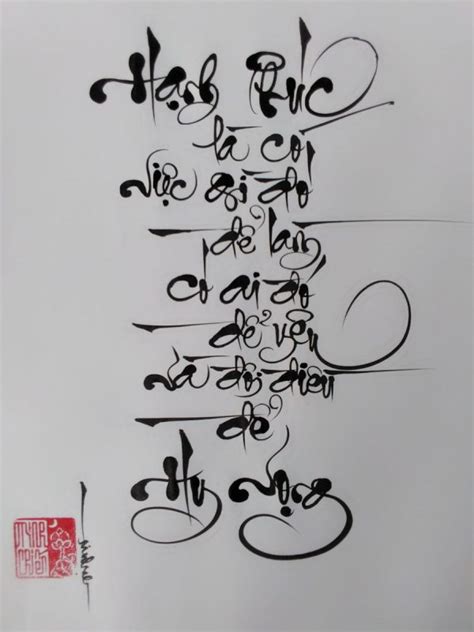 Hạnh Phúc
là có
việc gì đó
để làm,
có ai đó
để yêu
và đôi điều
để
Hy Vọng